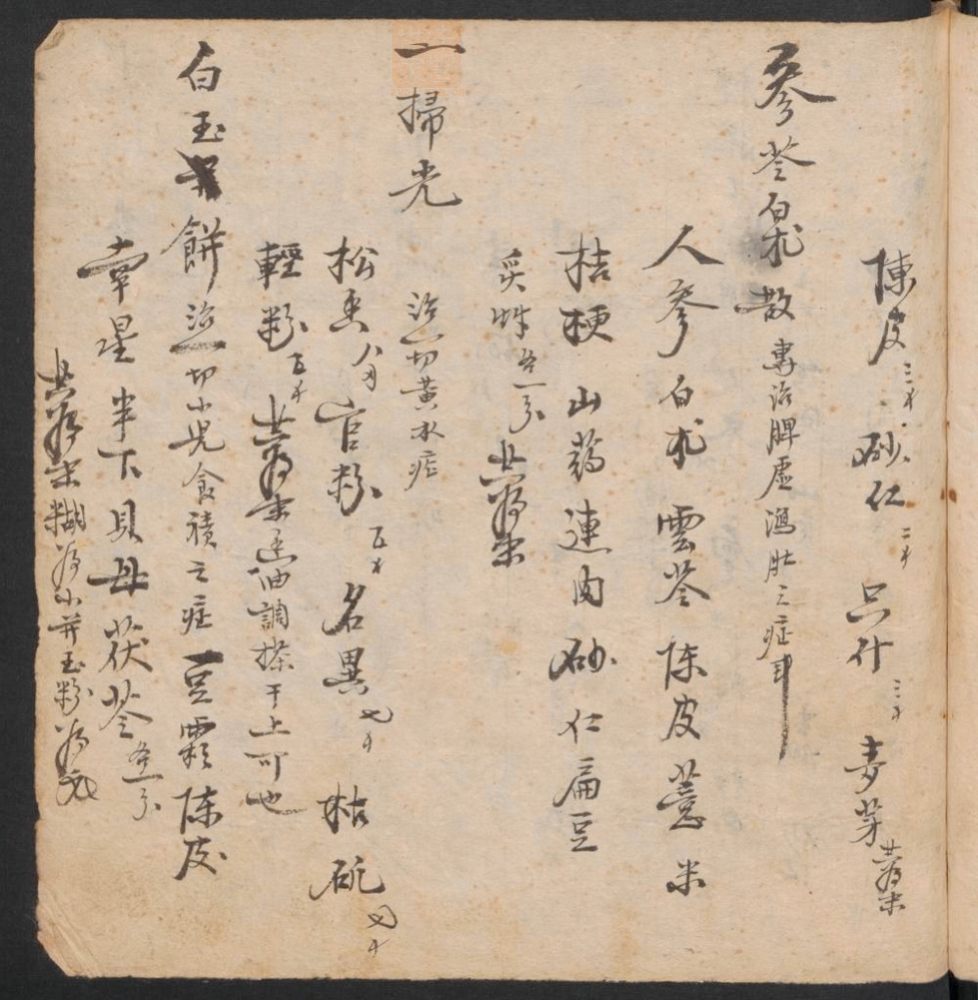 陳皮三才砂仁二才只什三才麦芽共為末
參苓白朮散專治脾虛瀉肚之症耳
人參白朮雲苓陳皮薏米
桔梗山药連肉砂仁扁豆
炙艸各一分共為末
一掃光治一切黄水疮
松香八分官粉五才名異七才枯矾四才
輕粉五才共為末香油調搽干上可也
白玉餅治一切小児食積之症豆霜陈皮
南星半下貝母茯苓各一分
共為末糊為小并玉粉為衣